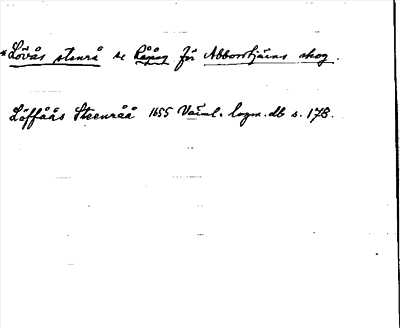 *Lövås stenrå se Råpåg för Abborrtjärns skog.
Löffåås Steenråå 1655 Värml. lagm. db s. 178.